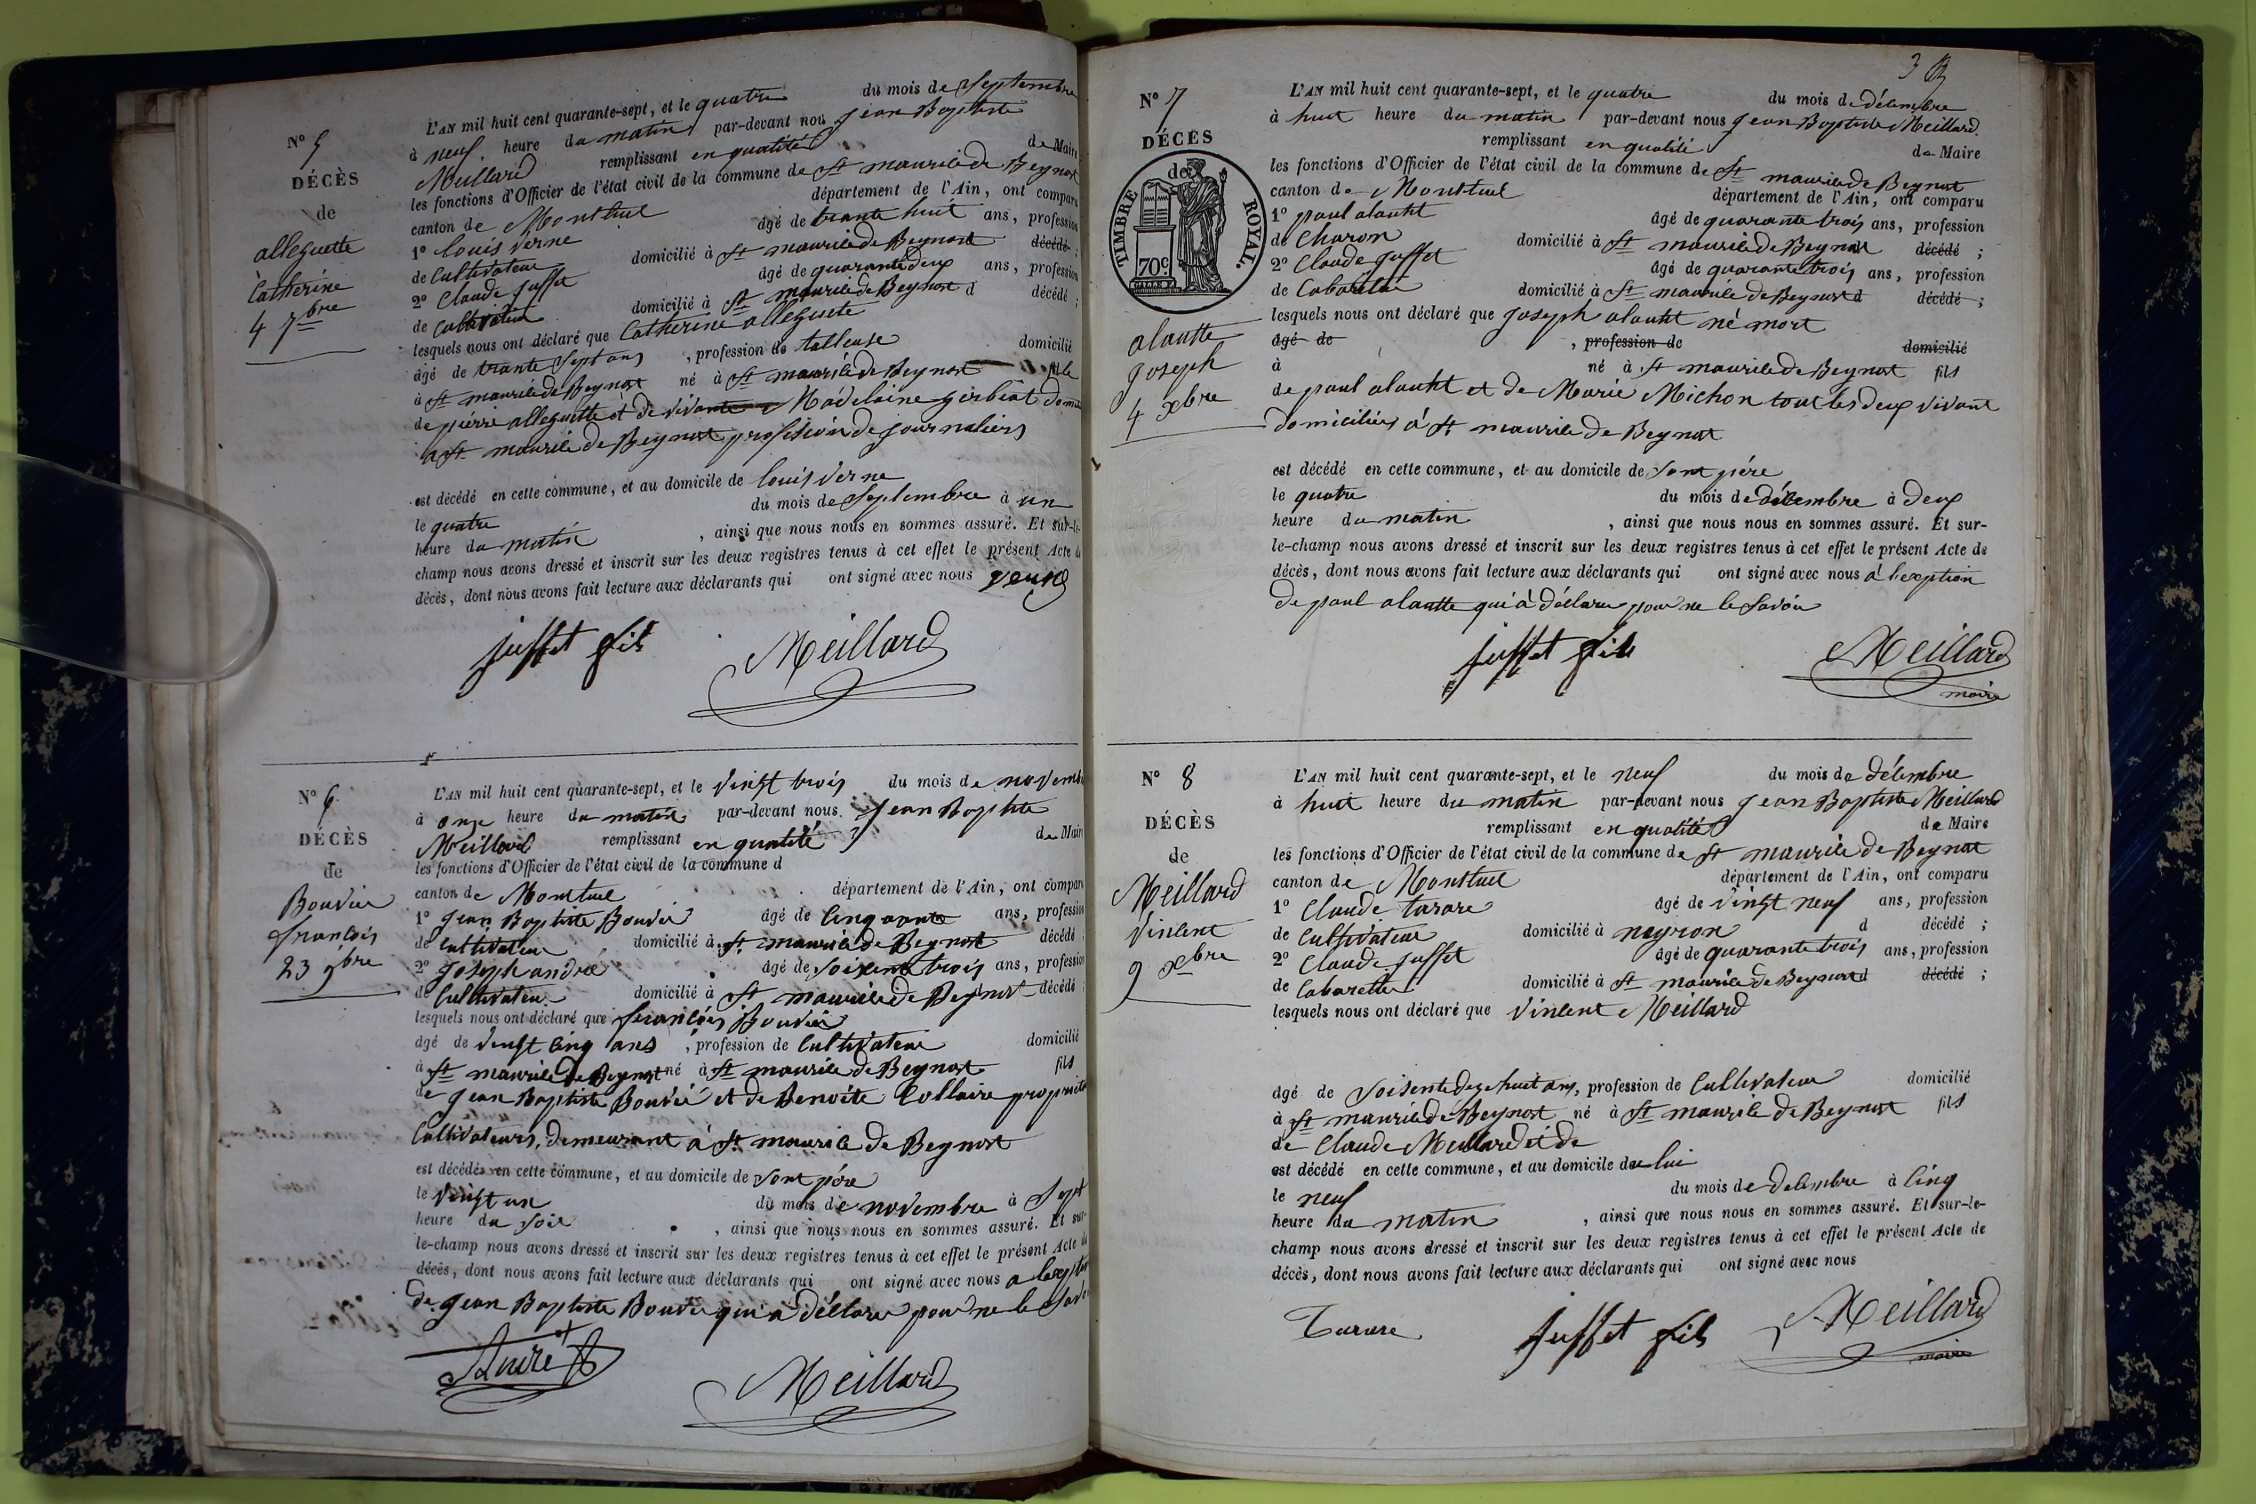 N° 5
DÉCÈS
de
alleguette
Catherine
4 7bre
L'AN mil huit cent quarante-sept, et le quatre du mois de Septembre
à neuf heure du matin par-devant nous jean Baptiste
Meillard remplissant en qualité de Maire
les fonctions d'Officier de l'état civil de la commune de St maurice de Beynost
canton de Montluel département de l'Ain, ont comparu
1° louis verne âgé de trante huit ans, profession
de Cultivateur domicilié à St maurice de Beynost décédé ;
2° Claude juffet âgé de quarante deux ans, profession
de domicilié à St maurice de Beynost d décédé ;
lesquels nous ont déclaré que Catherine alleguete
âgé de trante Sept ans , profession de tailleuse domicilié
à St maurice de Beynost né à St maurice de Beynost fille
de pierre alleguette et de vivante Madelaine girbiat
a St maurice de Beynost profession de journaliers
est décédé en cette commune, et au domicile de louis verne
le quatre du mois de Septembre à un
heure du matin , ainsi que nous nous en sommes assuré. Et sur-le-
champ nous avons dressé et inscrit sur les deux registres tenus à cet effet le présent Acte de
décès, dont nous avons fait lecture aux déclarants qui ont signé avec nous
juffet fils Meillard
N° 6
DÉCÈS
de
Bouvier
françois
23 9bre
L'AN mil huit cent quarante-sept, et le vingt trois du mois de novembre
à onze heure du matin par-devant nous jean Baptiste
Meillard remplissant en qualité de Maire
les fonctions d'Officier de l'état civil de la commune d
canton de Montluel département de l'Ain, ont comparu
1° jean Baptiste Bouvier âgé de Cinquante ans, profession
de Cultivateur domicilié à St maurice de Beynost décédé ;
2° joseph andré âgé de Soixente trois ans, profession
de Cultivateur domicilié à St maurice de Beynost décédé ;
lesquels nous ont déclaré que françois Bouvier
âgé de vingt cinq ans , profession de Cultivateur domicilié
à St maurice de Beynost né à St maurice de Beynost fils
de jean Baptiste Bouvier et de Benoite Collaire propriétaire
Cultivateurs, demeurant a St maurice de Beynost
est décédé en cette commune, et au domicile de Sont père
le vingt un du mois de novembre à Sept
heure du soir , ainsi que nous nous en sommes assuré. Et sur-
le-champ nous avons dressé et inscrit sur les deux registres tenus à cet effet le présent Acte de
décès, dont nous avons fait lecture aux déclarants qui ont signé avec nous a
de jean Baptiste Bouvier qui a déclaré pour ne le Savoir
André Meillard
3
N° 7
DÉCÈS
de
TIMBRE ROYAL.
70c
alautte
joseph
4 xbre
L'AN mil huit cent quarante-sept, et le quatre du mois de décembre
à huit heure du matin par-devant nous jean Baptiste Meillard
remplissant en qualité de Maire
les fonctions d'Officier de l'état civil de la commune de St maurice de Beynost
canton de Montluel département de l'Ain, ont comparu
1° paul alautte âgé de quarante trois ans, profession
de Charon domicilié à St maurice de Beynost décédé ;
2° Claude juffet âgé de quarante trois ans, profession
de Cabaretier domicilié à St maurice de Beynost d décédé ;
lesquels nous ont déclaré que joseph alautte né mort
âgé de , profession de domicilié
à né à St maurice de Beynost fils
de paul alautte et de Marie Michon tout les deux vivant
domiciliés à St maurice de Beynost
est décédé en cette commune, et au domicile de Sont père
le quatre du mois de décembre à deux
heure du matin , ainsi que nous nous en sommes assuré. Et sur-
le-champ nous avons dressé et inscrit sur les deux registres tenus à cet effet le présent Acte de
décès, dont nous avons fait lecture aux déclarants qui ont signé avec nous à l'exeption
de paul alautte qui à déclare pour ne le Savoir
juffet fils Meillard
maire
N° 8
DÉCÈS
de
Meillard
Vincent
9 xbre
L'AN mil huit cent quarante-sept, et le neuf du mois de décembre
à huit heure du matin par-devant nous jean Baptiste Meillard
remplissant en qualité de Maire
les fonctions d'Officier de l'état civil de la commune de St maurice de Beynost
canton de Montluel département de l'Ain, ont comparu
1° Claude tarare âgé de vingt neuf ans, profession
de Cultivateur domicilié à neyron d décédé ;
2° Claude juffet âgé de quarante trois ans, profession
de Cabaretier domicilié à St maurice de Beynost d décédé ;
lesquels nous ont déclaré que vincent Meillard
âgé de Soisente dege huit ans, profession de Cultivateur domicilié
à St maurice de Beynost né à St maurice de Beynost fils
de Claude Meillard et de
est décédé en cette commune, et au domicile de lui
le neuf du mois de decembre à Cinq
heure du matin , ainsi que nous nous en sommes assuré. Et sur-le-
champ nous avons dressé et inscrit sur les deux registres tenus à cet effet le présent Acte de
décès, dont nous avons fait lecture aux déclarants qui ont signé avec nous
Tarare juffet fils Meillard
maire